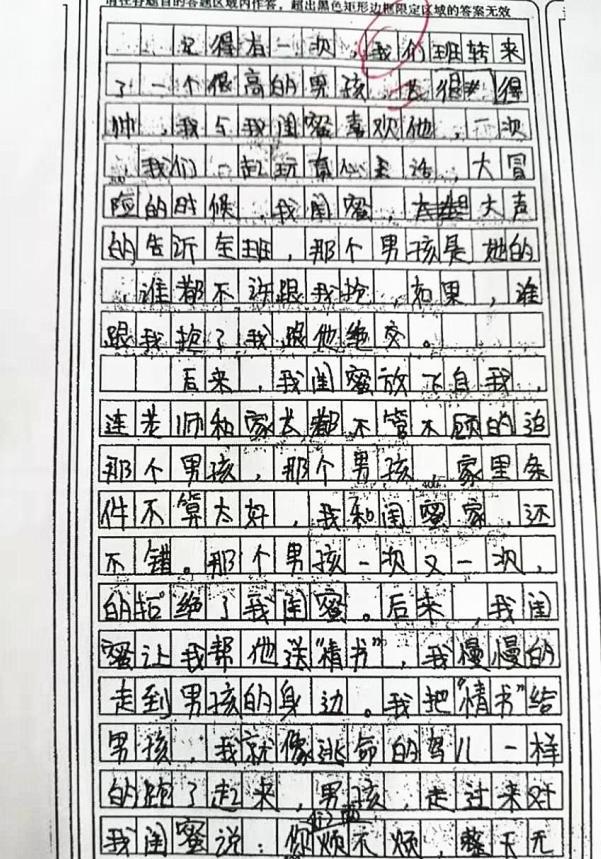 请在各题目的答题区域内作答，超出黑色矩形边框限定区域的答案无效
记得有一次，我们班转来
了一个很高的男孩，长得
帅，我与我闺蜜喜欢他，一次
，我们一起玩真心话，大冒
险的时候，我闺蜜，大声
的告诉全班，那个男孩是她的
，谁都不许跟我抢，如果，谁
跟我抢了我跟他绝交。
后来，我闺蜜放下自我，
连老师和家长都不管不顾的追
那个男孩，那个男孩，家里条
件不算太好，我和闺蜜家，还
不错。那个男孩一次又一次，
的拒绝了我闺蜜。后来，我闺
蜜让我帮他送“情书”，我慢慢的
走到男孩的身边。我把“情书”给
男孩，我就像逃命的鸟儿一样
的跑了起来，男孩，走过来对
我闺蜜说：你烦不烦，整天无